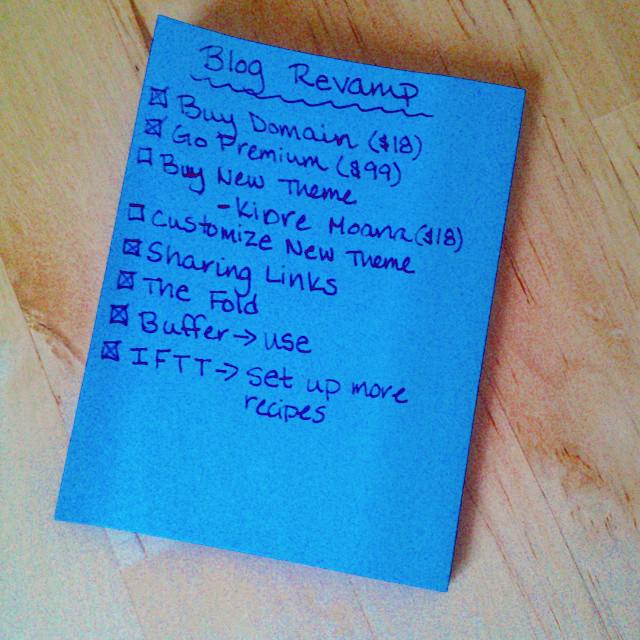 Blog Revamp
☒ Buy Domain ($18)
☒ Go Premium ($99)
☐ Buy New Theme
-Kidre Moana ($18)
☐ Customize New Theme
☒ Sharing Links
☒ The Fold
☒ Buffer → use
☒ IFTT → set up more
recipes